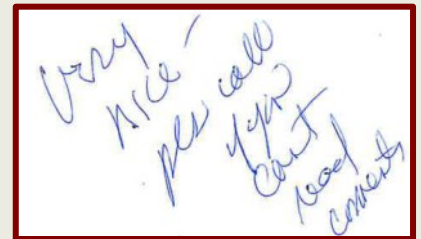 Very
nice -
pls call
if you
can't
read
comments